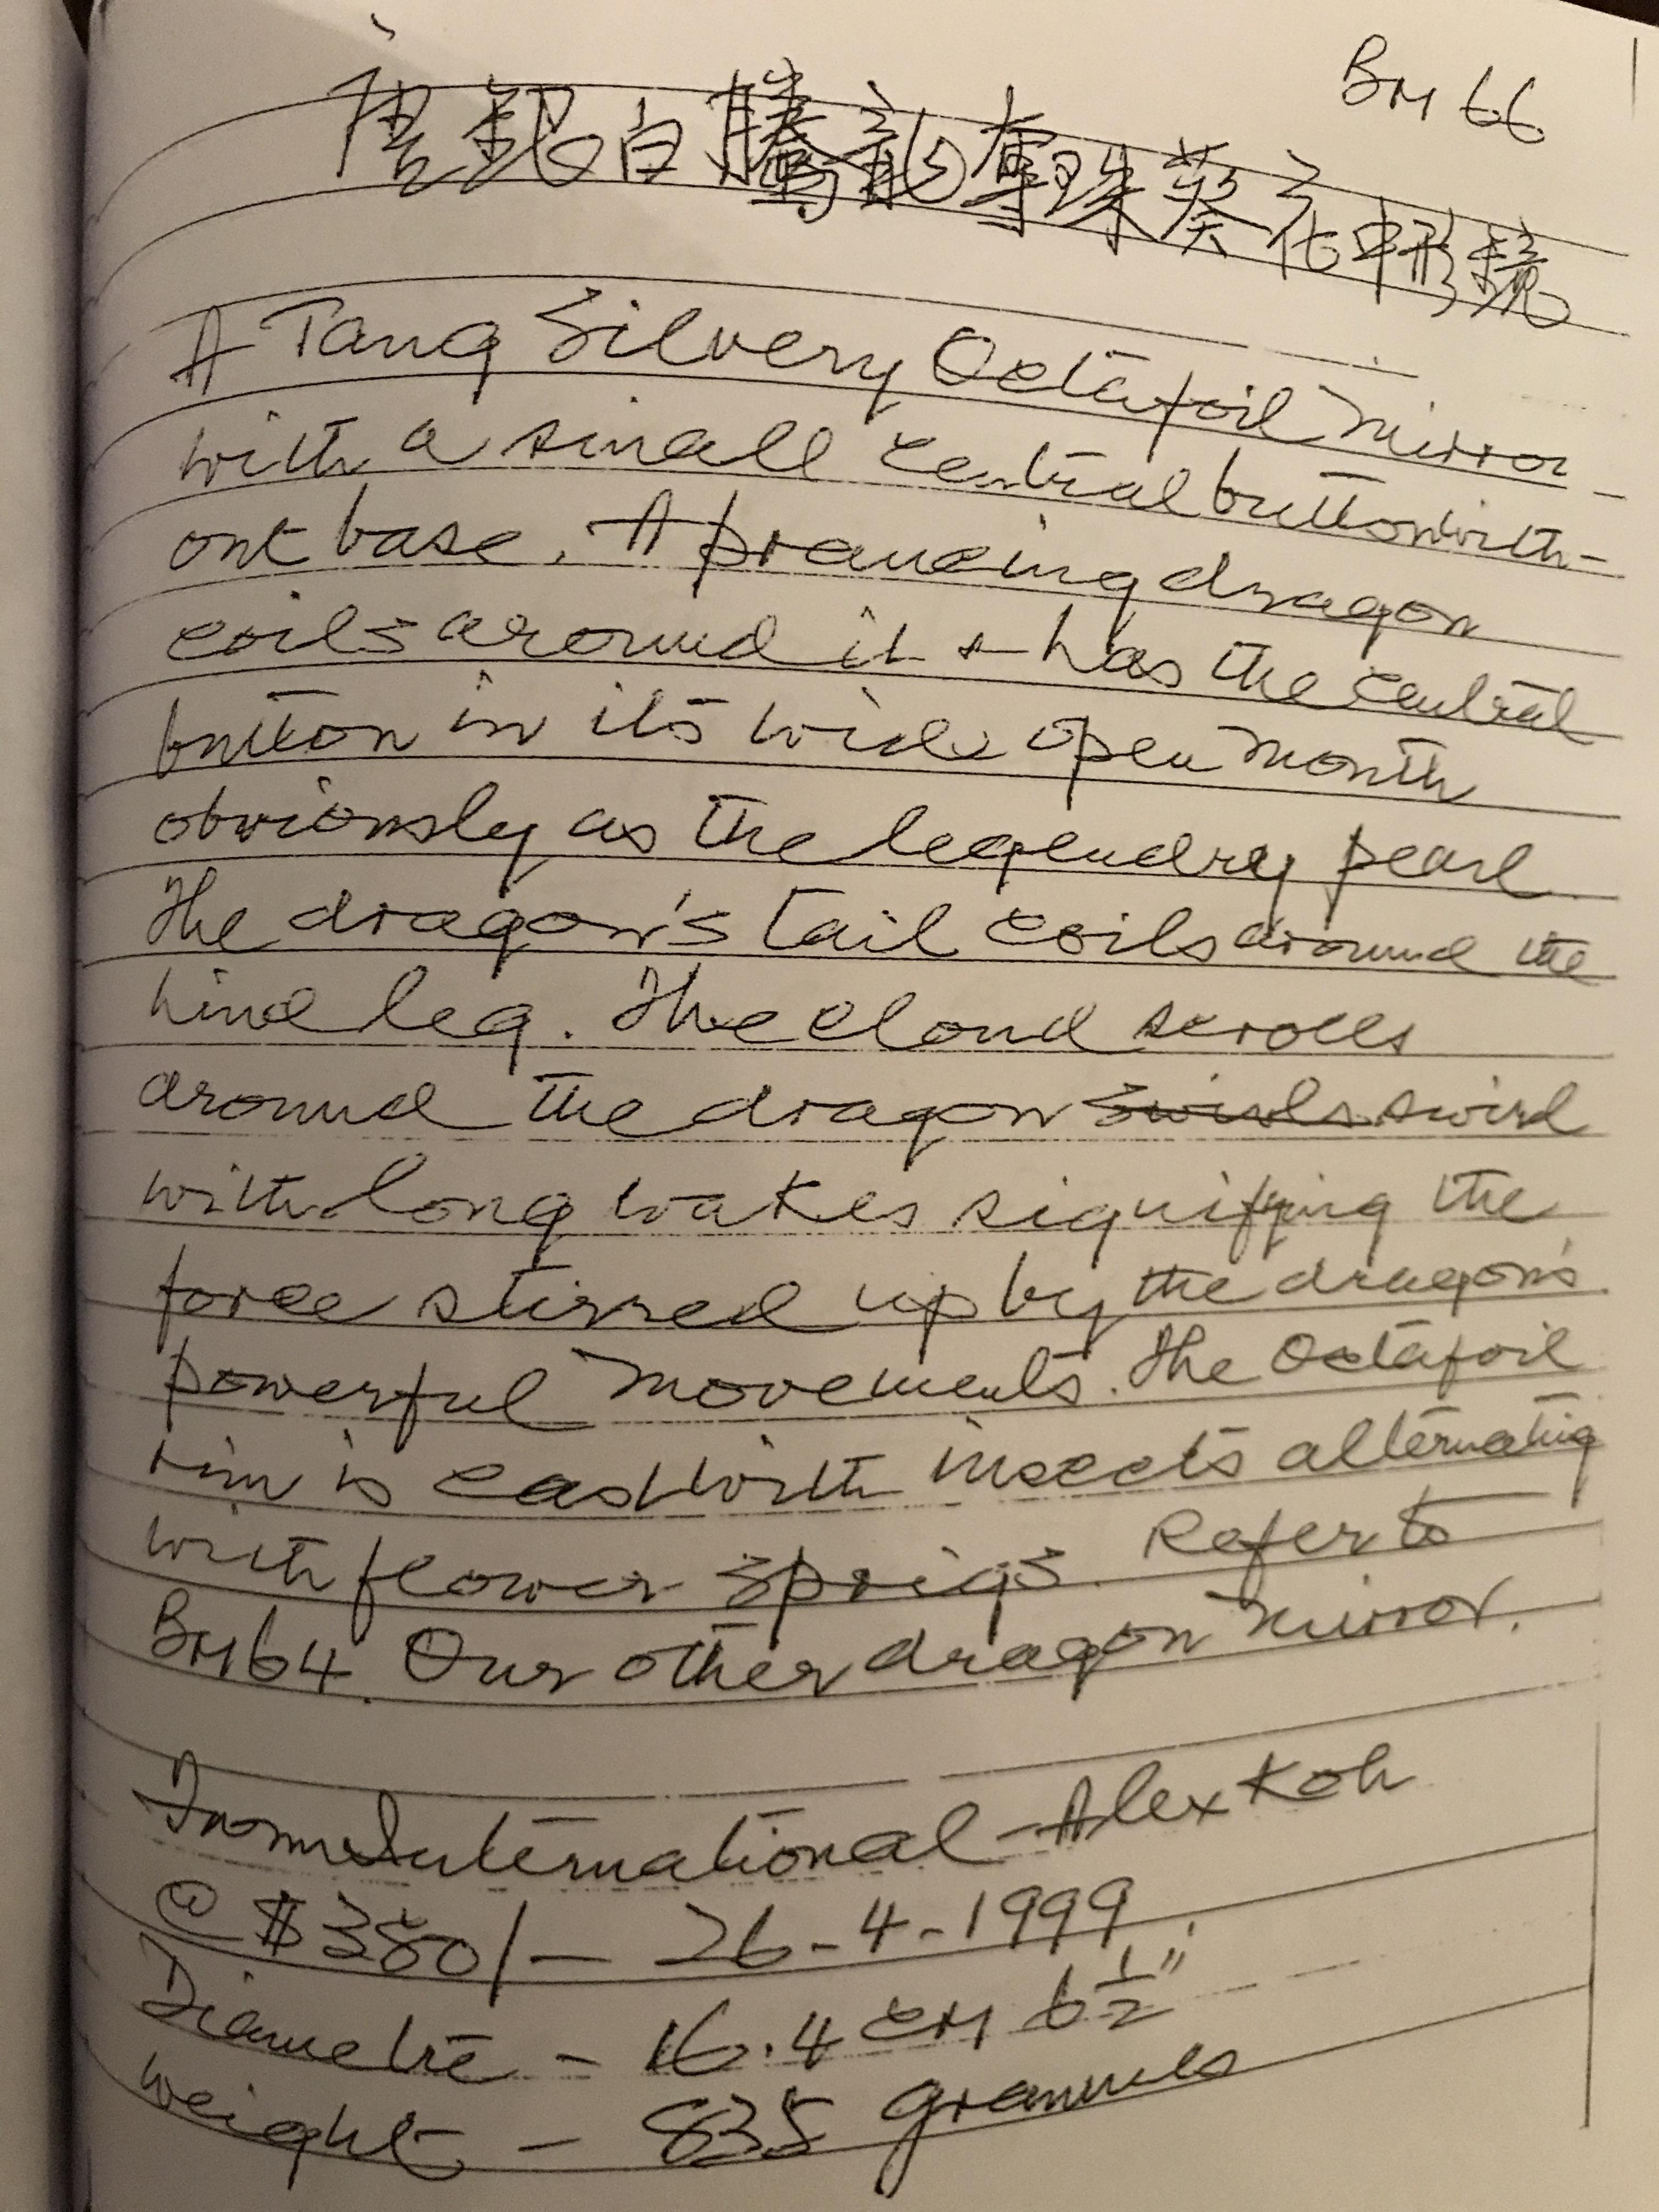 BM 66
唐銀白騰龍奪珠葵花中形鏡
A Tang Silvery Octafoil Mirror
with a small central button with-
out base. A prancing dragon
coils around it & has the central
button in its wide open mouth
obviously as the legendry pearl
The dragon's tail coils around the
hind leg. The cloud scrolls
around the dragon swirls swirl
with long wakes signifying the
force stirred up by the dragon's
powerful movements. The Octafoil
rim is cast with insects alternating
with flower sprigs. Refer to
BM64. Our other dragon mirror.
From International - Alex Koh
@ $380/- 26-4-1999.
Diametre - 16.4 CM 6 1/2"
weight - 835 grammes